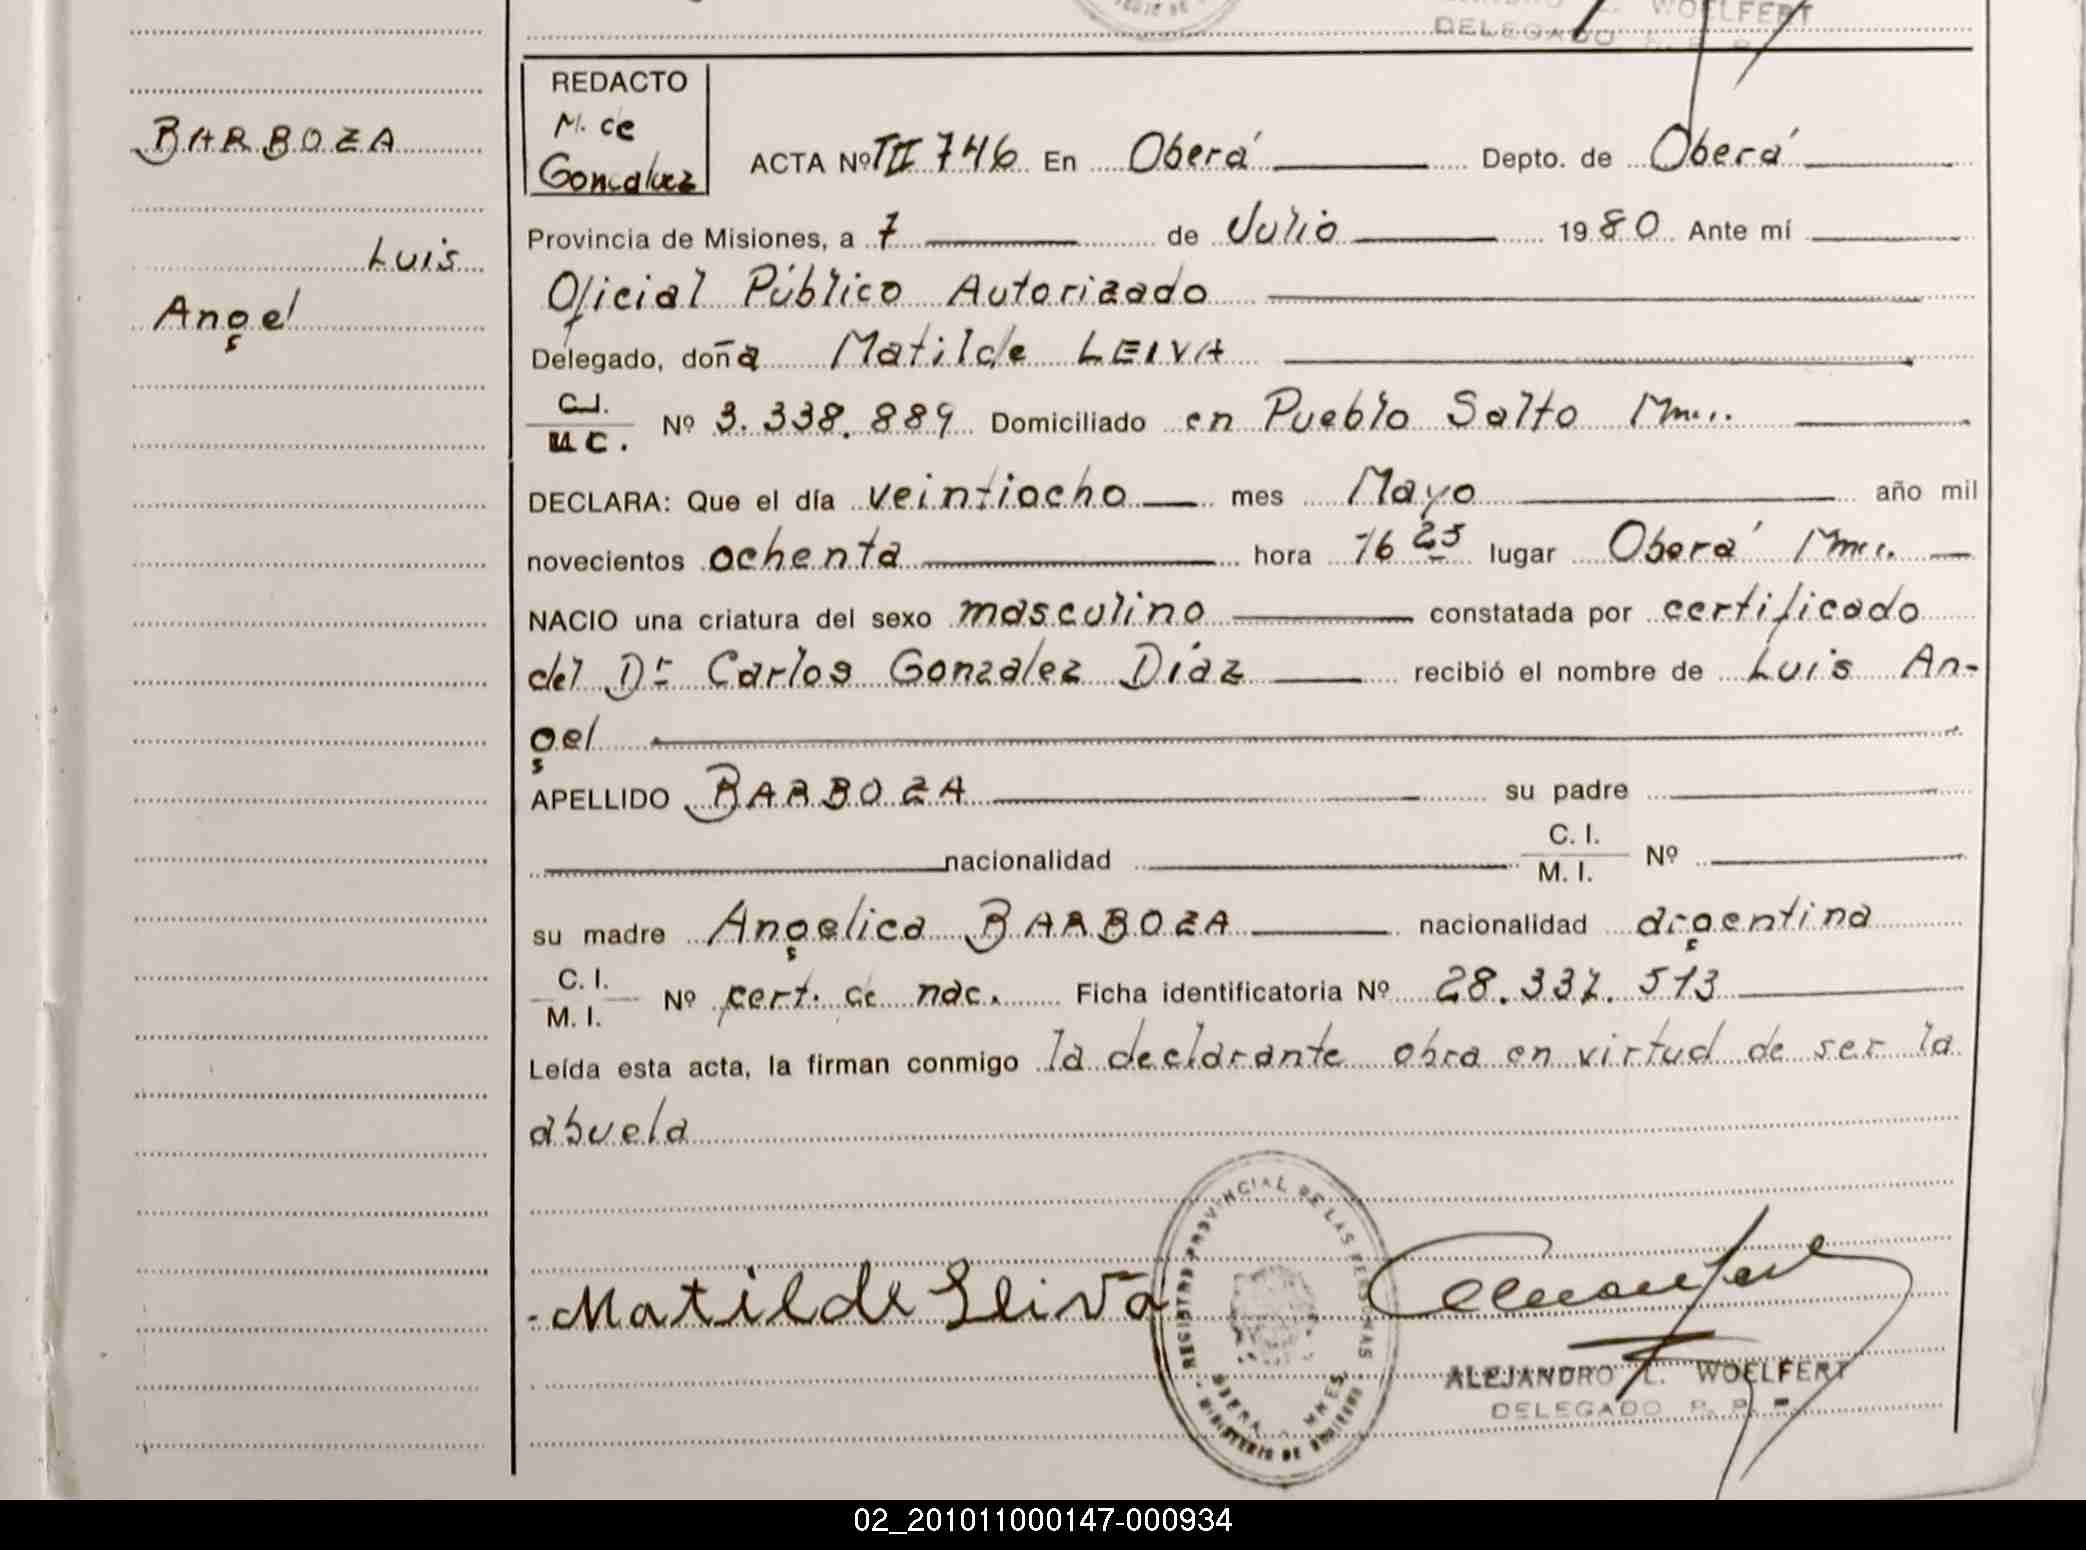 WOELFERT
DELEGADO
BARBOZA
Luis
Angel
REDACTO
M. de
Goncalvez
ACTA Nº TII 746 En Oberá Depto. de Oberá
Provincia de Misiones, a 7 de Julio 1980 Ante mí
Oficial Público Autorizado
Delegado, doña Matilde LEIVA
C.I.
M.C. Nº 3.338.889 Domiciliado en Pueblo Salto Mnes.
DECLARA: Que el día veintiocho mes Mayo año mil
novecientos ochenta hora 16 25 lugar Oberá Mnes.
NACIO una criatura del sexo masculino constatada por certificado
del Dr Carlos Gonzalez Díaz recibió el nombre de Luis An-
gel
APELLIDO BARBOZA su padre
nacionalidad C. I.
M. I. Nº
su madre Angelica BARBOZA nacionalidad argentina
C. I.
M. I. Nº cert. de nac. Ficha identificatoria Nº 28.337.513
Leída esta acta, la firman conmigo la declarante obra en virtud de ser la
abuela
Matilde Leiva
REGISTRO PROVINCIAL DE LAS PERSONAS
OBERA - MNES.
MINISTERIO DE GOBIERNO
ALEJANDRO L. WOELFERT
DELEGADO R. P. P.
02_201011000147-000934